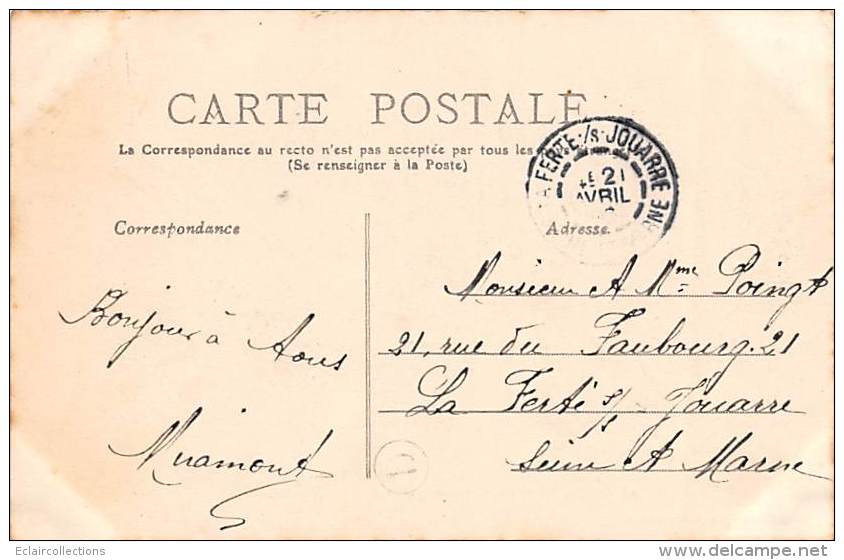 CARTE POSTALE
La Correspondance au recto n'est pas acceptée par tous les
(Se renseigner à la Poste)
FERTE-/S-JOUARRE
21
AVRIL
Correspondance
Adresse.
Monsieur A Mme Poingt
21, rue du Faubourg. 21
La Ferté s/s Jouarre
Seine A Marne
Bonjour à Aous
Miaimont
Eclaircollections
www.delcampe.net